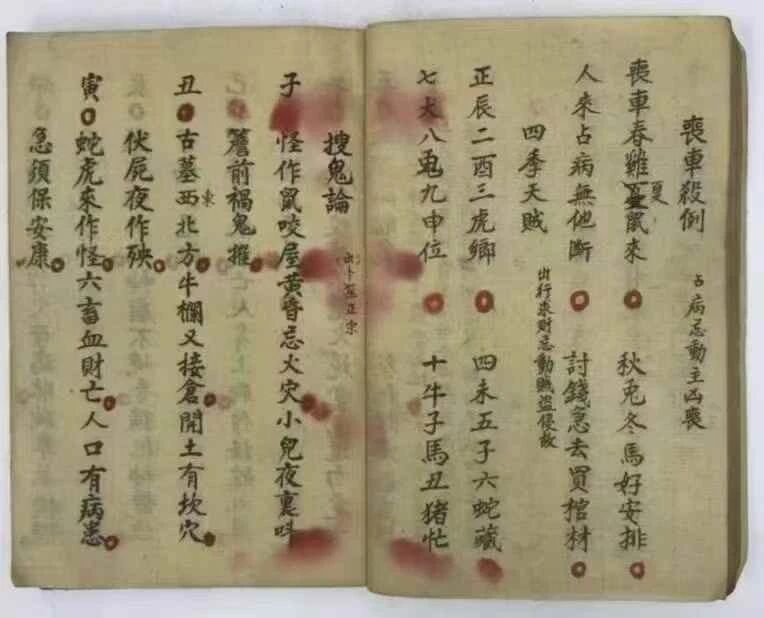 喪車殺例 占病忌動主凶喪
喪車春雞夏鼠來 秋兎冬馬好安排
人來占病無他斷 討錢急去買棺材
四季天賊 出行求財忌動賊盜侵故
正辰二酉三虎鄉 四未五子六蛇藏
七犬八兎九申位 十牛子馬丑猪忙
搜鬼論 出卜筮正宗
子 怪作鼠咬屋黃昏忌火灾小兒夜裏呌
簷前禍鬼推
丑 古墓西東北方牛欄又接倉開土有坎穴
伏屍夜作殃
寅 蛇虎來作怪六畜血財亡人口有病患
急須保安康